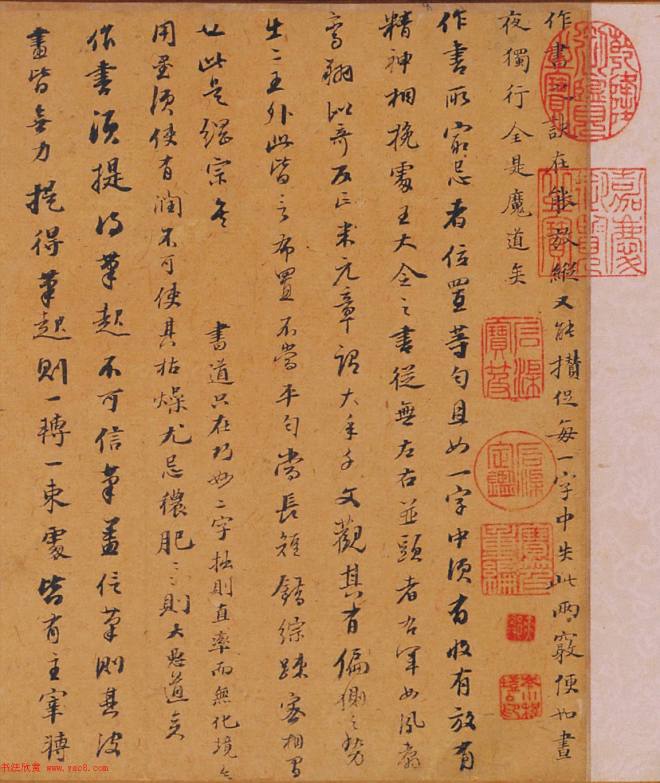 作書之訣在能放縱又能攢促每一字中失此兩竅便如晝
夜獨行全是魔道矣
作書所最忌者位置等勻且如一字中須有收有放有
精神相挽處王大令之書從無左右並頭者右軍如鳳翥
鸞翔似奇反正米元章謂大年千文觀其有偏側之勢
出二王外此皆言布置不當平勻當長短錯綜疎密相間
也此是綱宗矣 書道只在巧妙二字拙則直率而無化境矣
用墨須使有潤不可使其枯燥尤忌穠肥〻則大惡道矣
作書須提得筆起不可信筆蓋信筆則其波
畫皆無力提得筆起則一轉一束處皆有主宰轉
乾隆御覽之寶
嘉慶御覽之寶
石渠寶笈
石渠定鑑
寶笈重編
书法欣赏 www.yac8.com